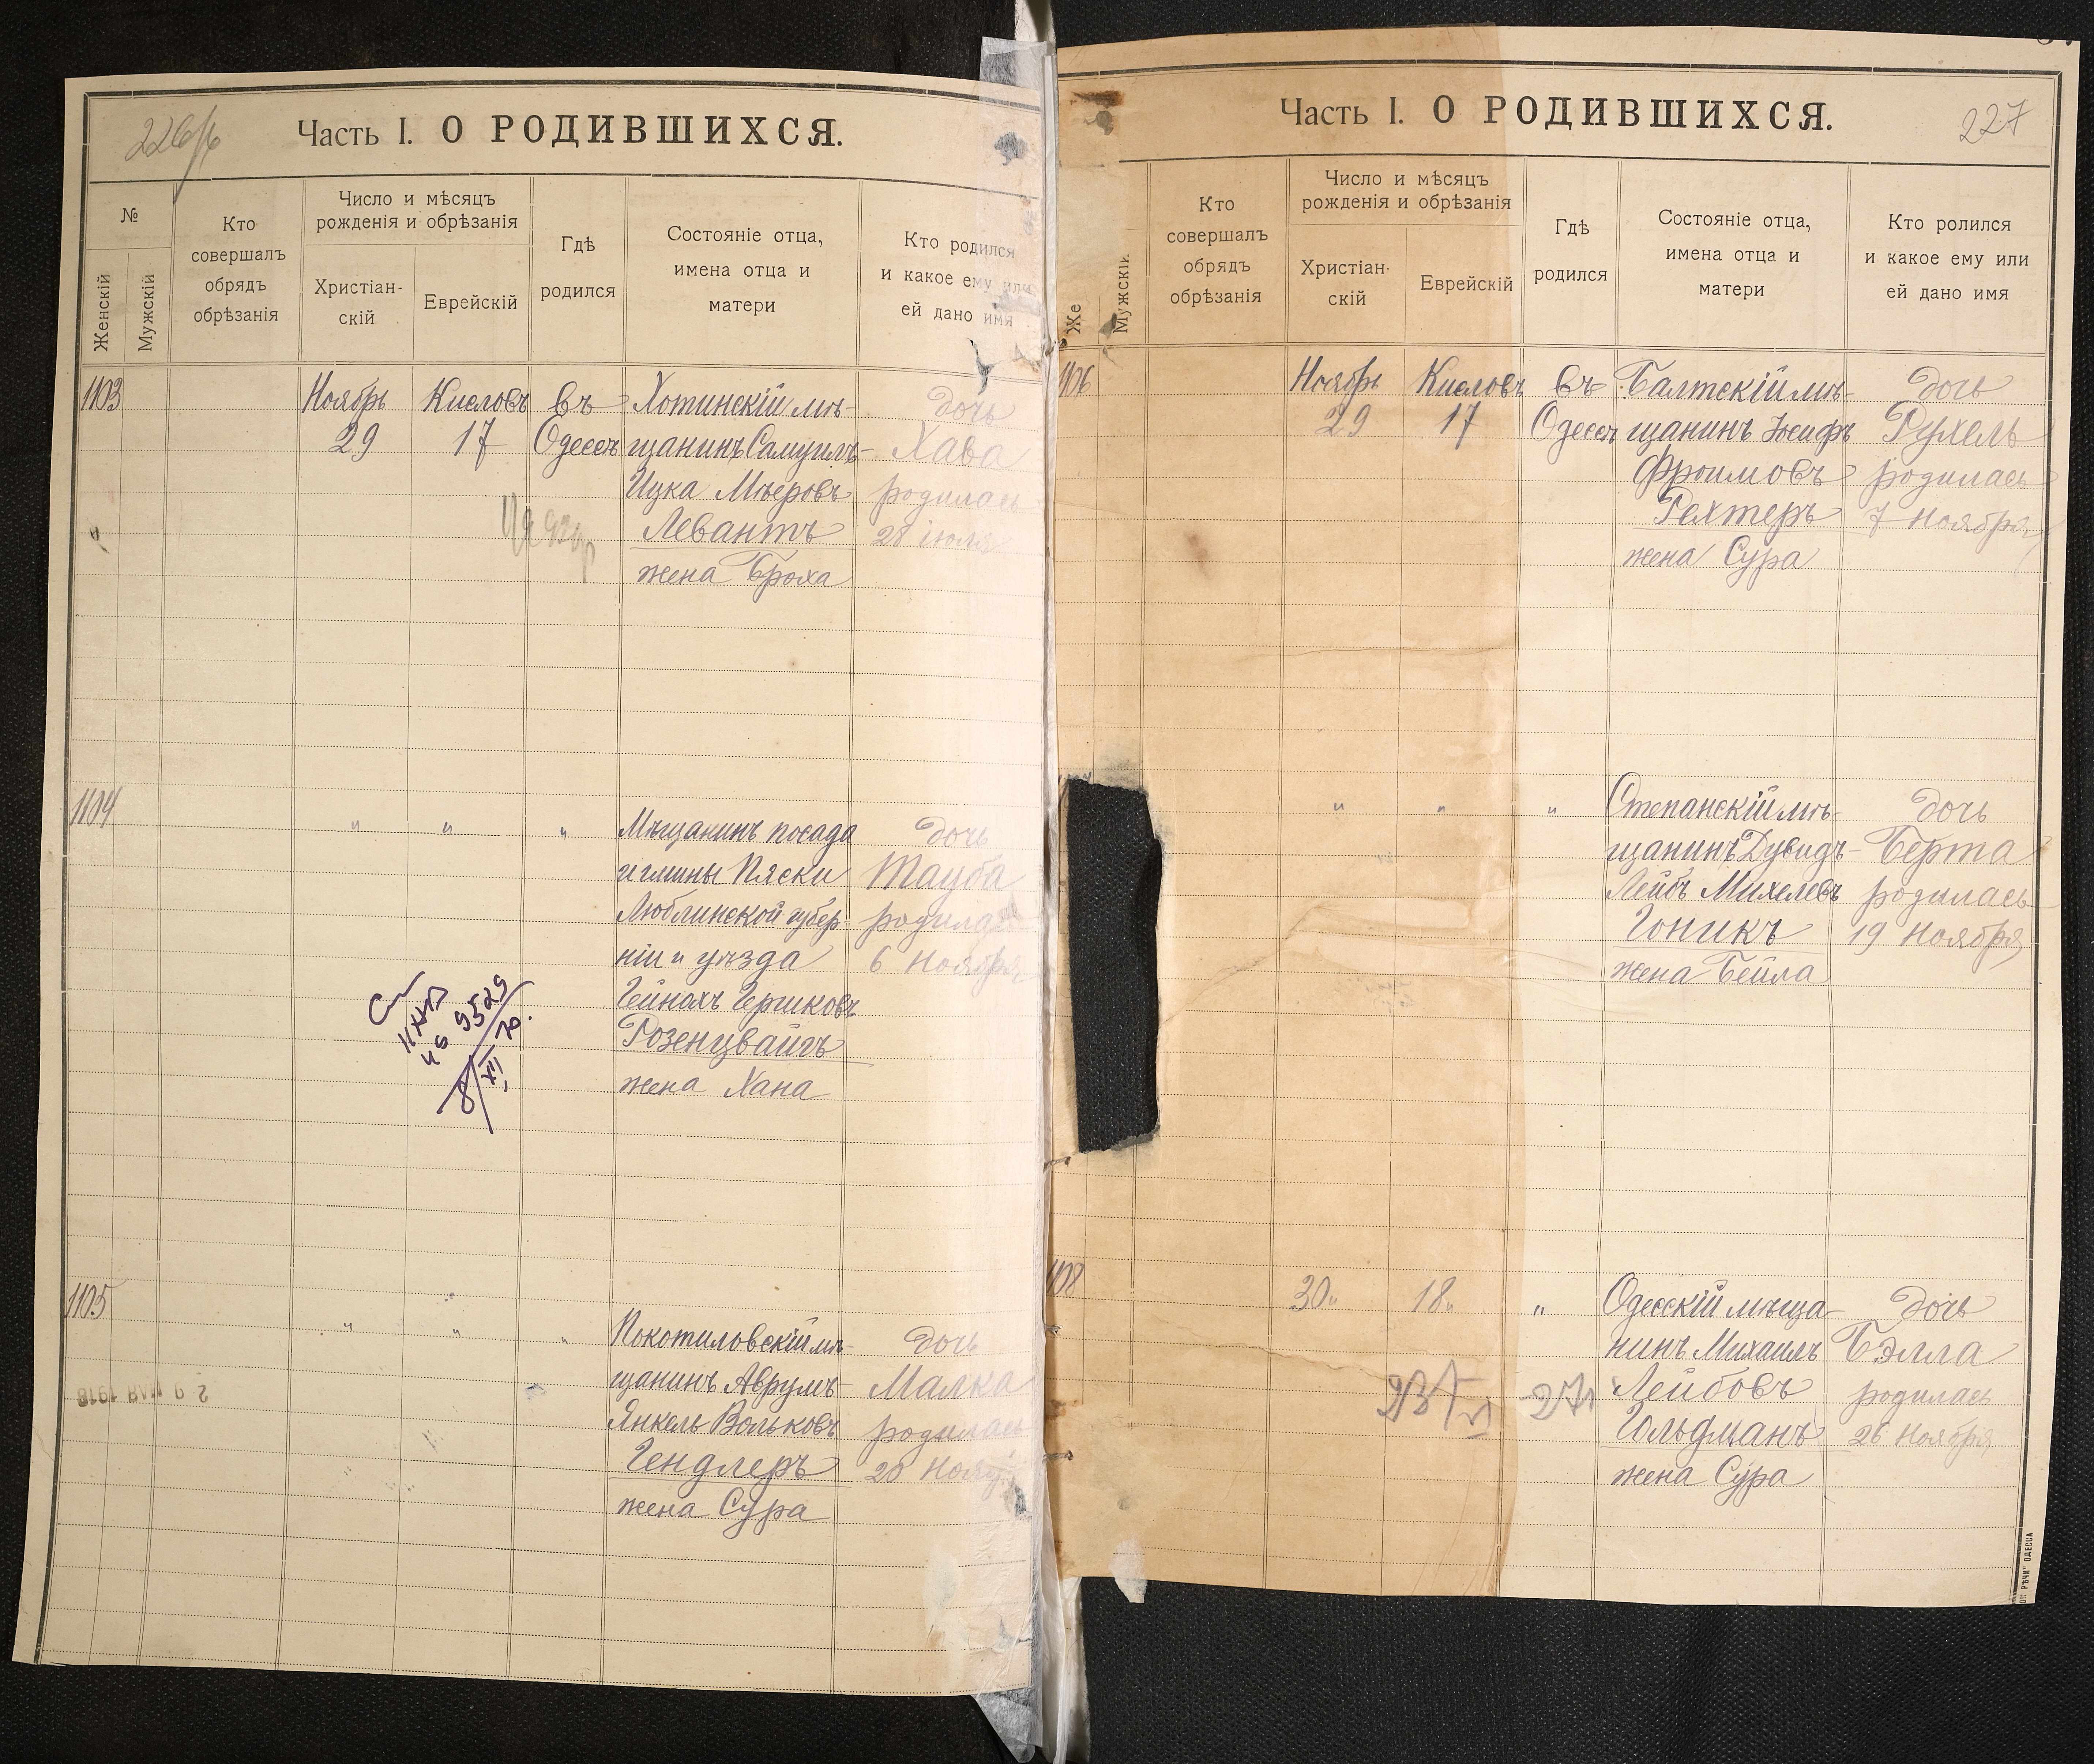 226/б
Часть I. О РОДИВШИХСЯ.
№
Женскій
Мужскій
Кто
совершалъ
обрядъ
обрѣзанія
Число и мѣсяцъ
рожденія и обрѣзанія
Христіан-
скій
Еврейскій
Гдѣ
родился
Состояніе отца,
имена отца и
матери
Кто родился
и какое ему или
ей дано имя
1103
Ноябрь
29
Кисловъ
17
Въ
Одессѣ
Хотинскій мѣ-
щанинъ Самуилъ-
Ицка Мѣеровъ
Левантъ
жена Броха
дочь
Хава
родилась
28 іюля
1104
"
"
"
Мѣщанинъ посада
и гмины Пяски
Люблинской губер-
ніи и уѣзда
Гейнохъ Гершковъ
Розенцвайгъ
жена Хана
дочь
Тауба
родилась
6 Ноября
9529
8/XII 70.
1105
"
"
"
Покотиловскій мѣ-
щанинъ Аврумъ-
Янкель Вольковъ
Гендлеръ
жена Сура
дочь
Малка
родилась
20
29 МАЯ 1918
Часть I. О РОДИВШИХСЯ.
227
Же
Мужскій
Кто
совершалъ
обрядъ
обрѣзанія
Число и мѣсяцъ
рожденія и обрѣзанія
Христіан-
скій
Еврейскій
Гдѣ
родился
Состояніе отца,
имена отца и
матери
Кто ролился
и какое ему или
ей дано имя
1106
Ноябрь
29
Кисловъ
17
Въ
Одессѣ
Балтскій мѣ-
щанинъ Іосифъ
Фроимовъ
Рехтеръ
жена Сура
дочь
Рухель
родилась
7 Ноября
"
"
"
Степанскій мѣ-
щанинъ Дувидъ-
Лейбъ Михелевъ
Гоникъ
жена Бейла
дочь
Берта
родилась
19 Ноября
1108
30"
18"
"
Одесскій мѣща-
нинъ Михаилъ
Лейбовъ
Гольдманъ
жена Сура
дочь
Бэлла
родилась
26 Ноября
РѢЧИ" ОДЕССА